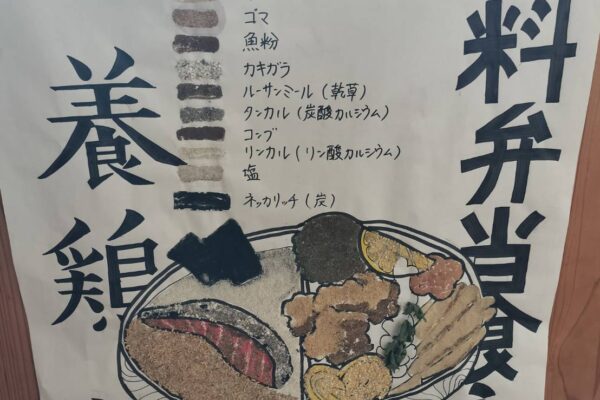 料弁当
養鶏
ゴマ
魚粉
カキガラ
ルーサンミール（乾草）
タンカル（炭酸カルシウム）
コンブ
リンカル（リン酸カルシウム）
塩
ネッカリッチ（炭）